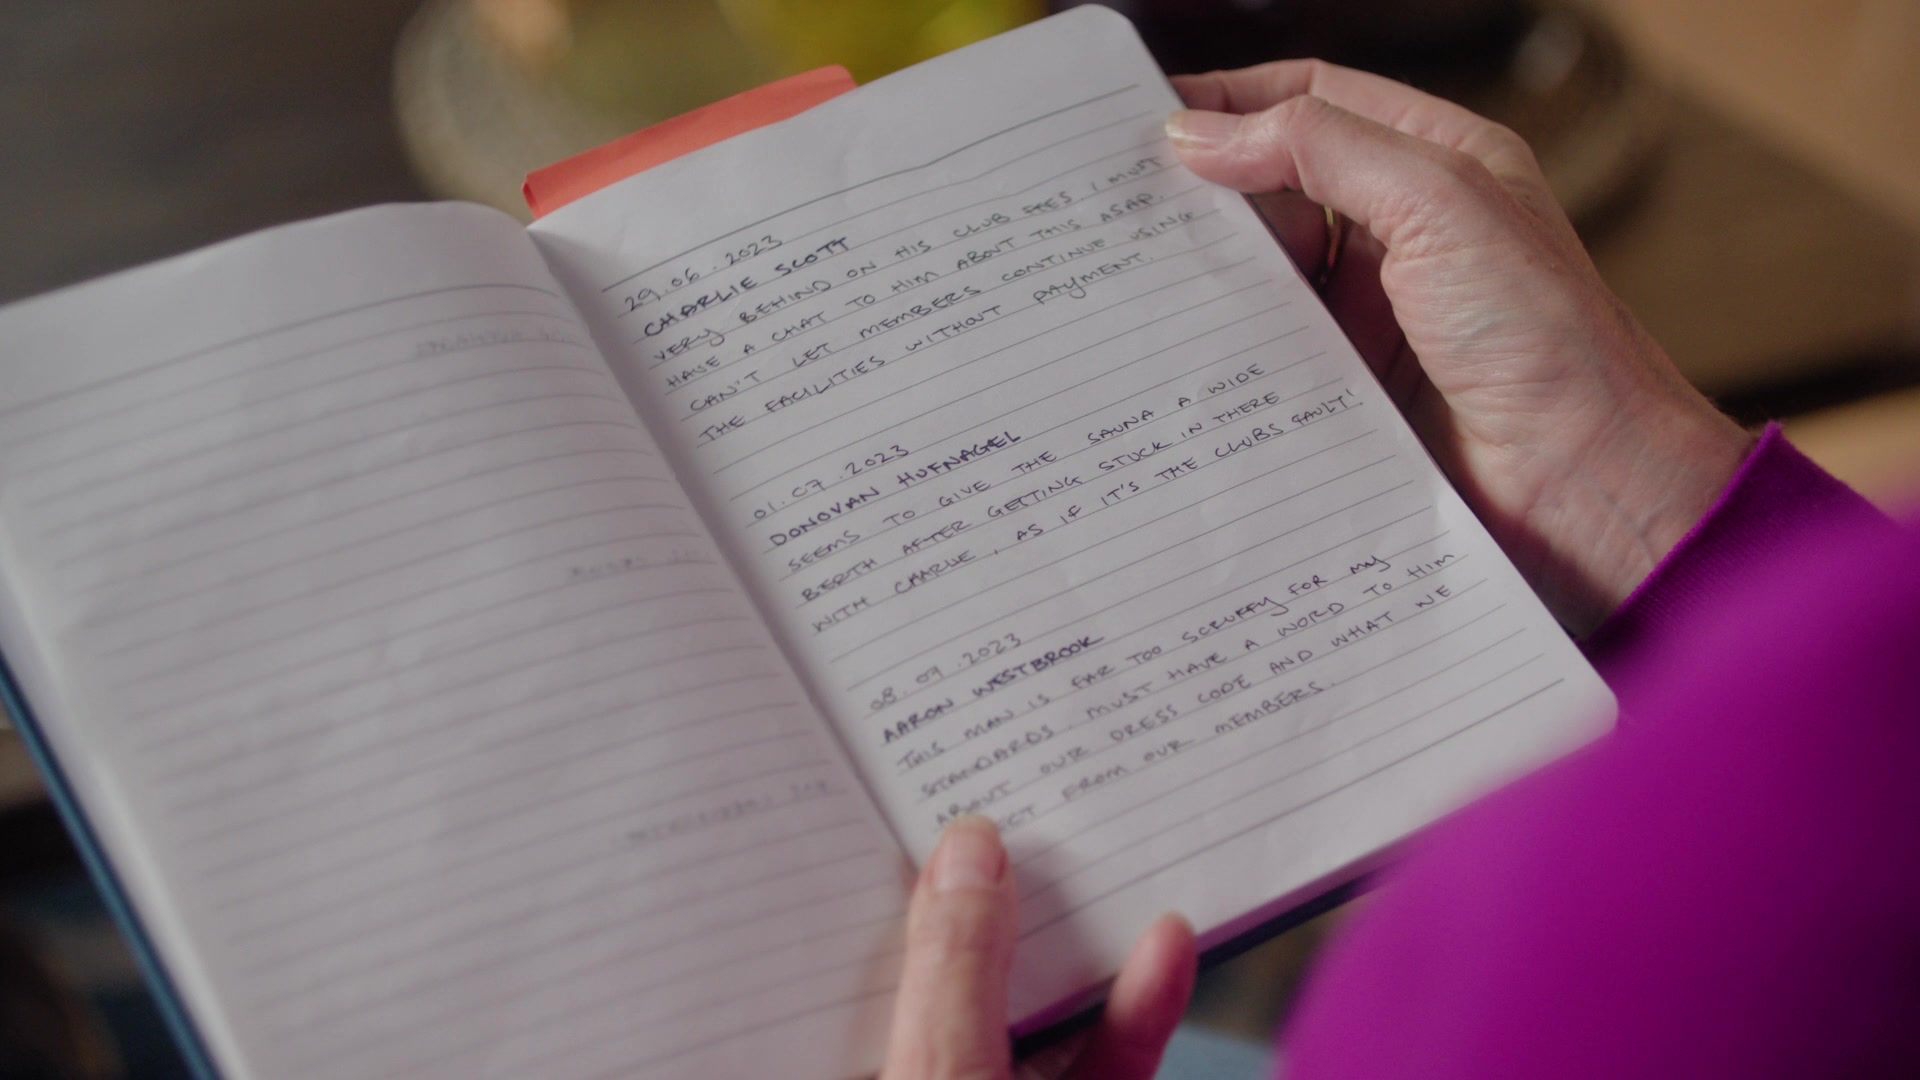 29.06.2023
CHARLIE SCOTT
VERY BEHIND ON HIS CLUB FEES, I MUST
HAVE A CHAT TO HIM ABOUT THIS ASAP.
CAN'T LET MEMBERS CONTINUE USING
THE FACILITIES WITHOUT PAYMENT.
01.07.2023
DONOVAN HUFNAGEL
SEEMS TO GIVE THE SAUNA A WIDE
BERTH AFTER GETTING STUCK IN THERE
WITH CHARLIE, AS IF IT'S THE CLUBS FAULT!
08.07.2023
AARON WESTBROOK
THIS MAN IS FAR TOO SCRUFFY FOR MY
STANDARDS. MUST HAVE A WORD TO HIM
ABOUT OUR DRESS CODE AND WHAT WE
FROM OUR MEMBERS.